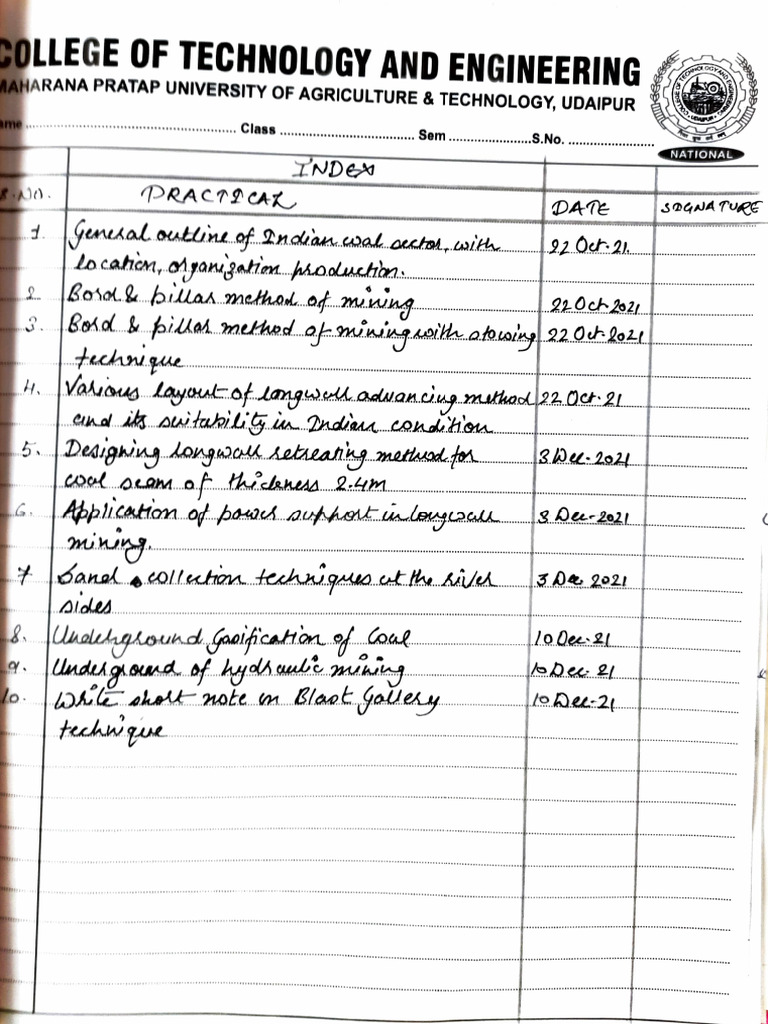 COLLEGE OF TECHNOLOGY AND ENGINEERING
MAHARANA PRATAP UNIVERSITY OF AGRICULTURE & TECHNOLOGY, UDAIPUR
ame ........ Class ........ Sem ........ S.No. ........
NATIONAL
INDEX
S.NO. PRACTICAL DATE SIGNATURE
1. General outline of Indian coal sector, with 22 Oct-21.
location, organization production.
2. Bord & pillar method of mining 22 Oct 2021
3. Bord & pillar method of mining with stowing 22 Oct 2021
technique
4. Various layout of longwall advancing method 22 Oct-21
and its suitability in Indian condition
5. Designing longwall retreating method for 3 Dec-2021
coal seam of thickness 2.4m
6. Application of power support in longwall 3 Dec-2021
mining.
7 Sand collection techniques at the river 3 Dec 2021
sides
8. Underground Gasification of Coal 10 Dec-21
9. Underground of hydraulic mining 10 Dec-21
10. Write short note on Blast Gallery 10 Dec-21
technique